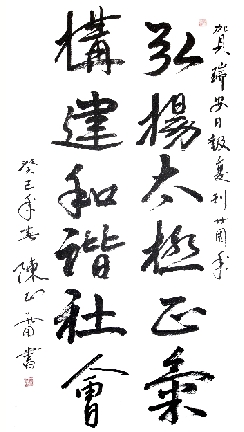 賀瑞安日報復刊廿周年
弘揚太極正氣
構建和諧社會
癸巳年春 陳正雷書